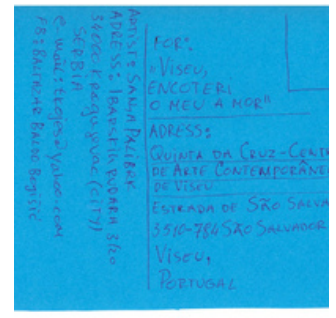 ARTIST: SANJA PALIBRK
ADRESS: IBARSKIH RUDARA 3/20
34000 Kragujevac (CITY)
SERBIA
e-mail: trojes@yahoo.com
FB: BALTAZAR BALDO Bogišić
FOR:
"VISEU,
ENCOTERI
O MEU A MOR"
ADRESS:
QUINTA DA CRUZ-CENT
DE ARTE CONTEMPORÂNE
DE VISEU
ESTRADA DE SÃO SALVA
3510-784 SÃO SALVADOR
VISEU,
PORTUGAL